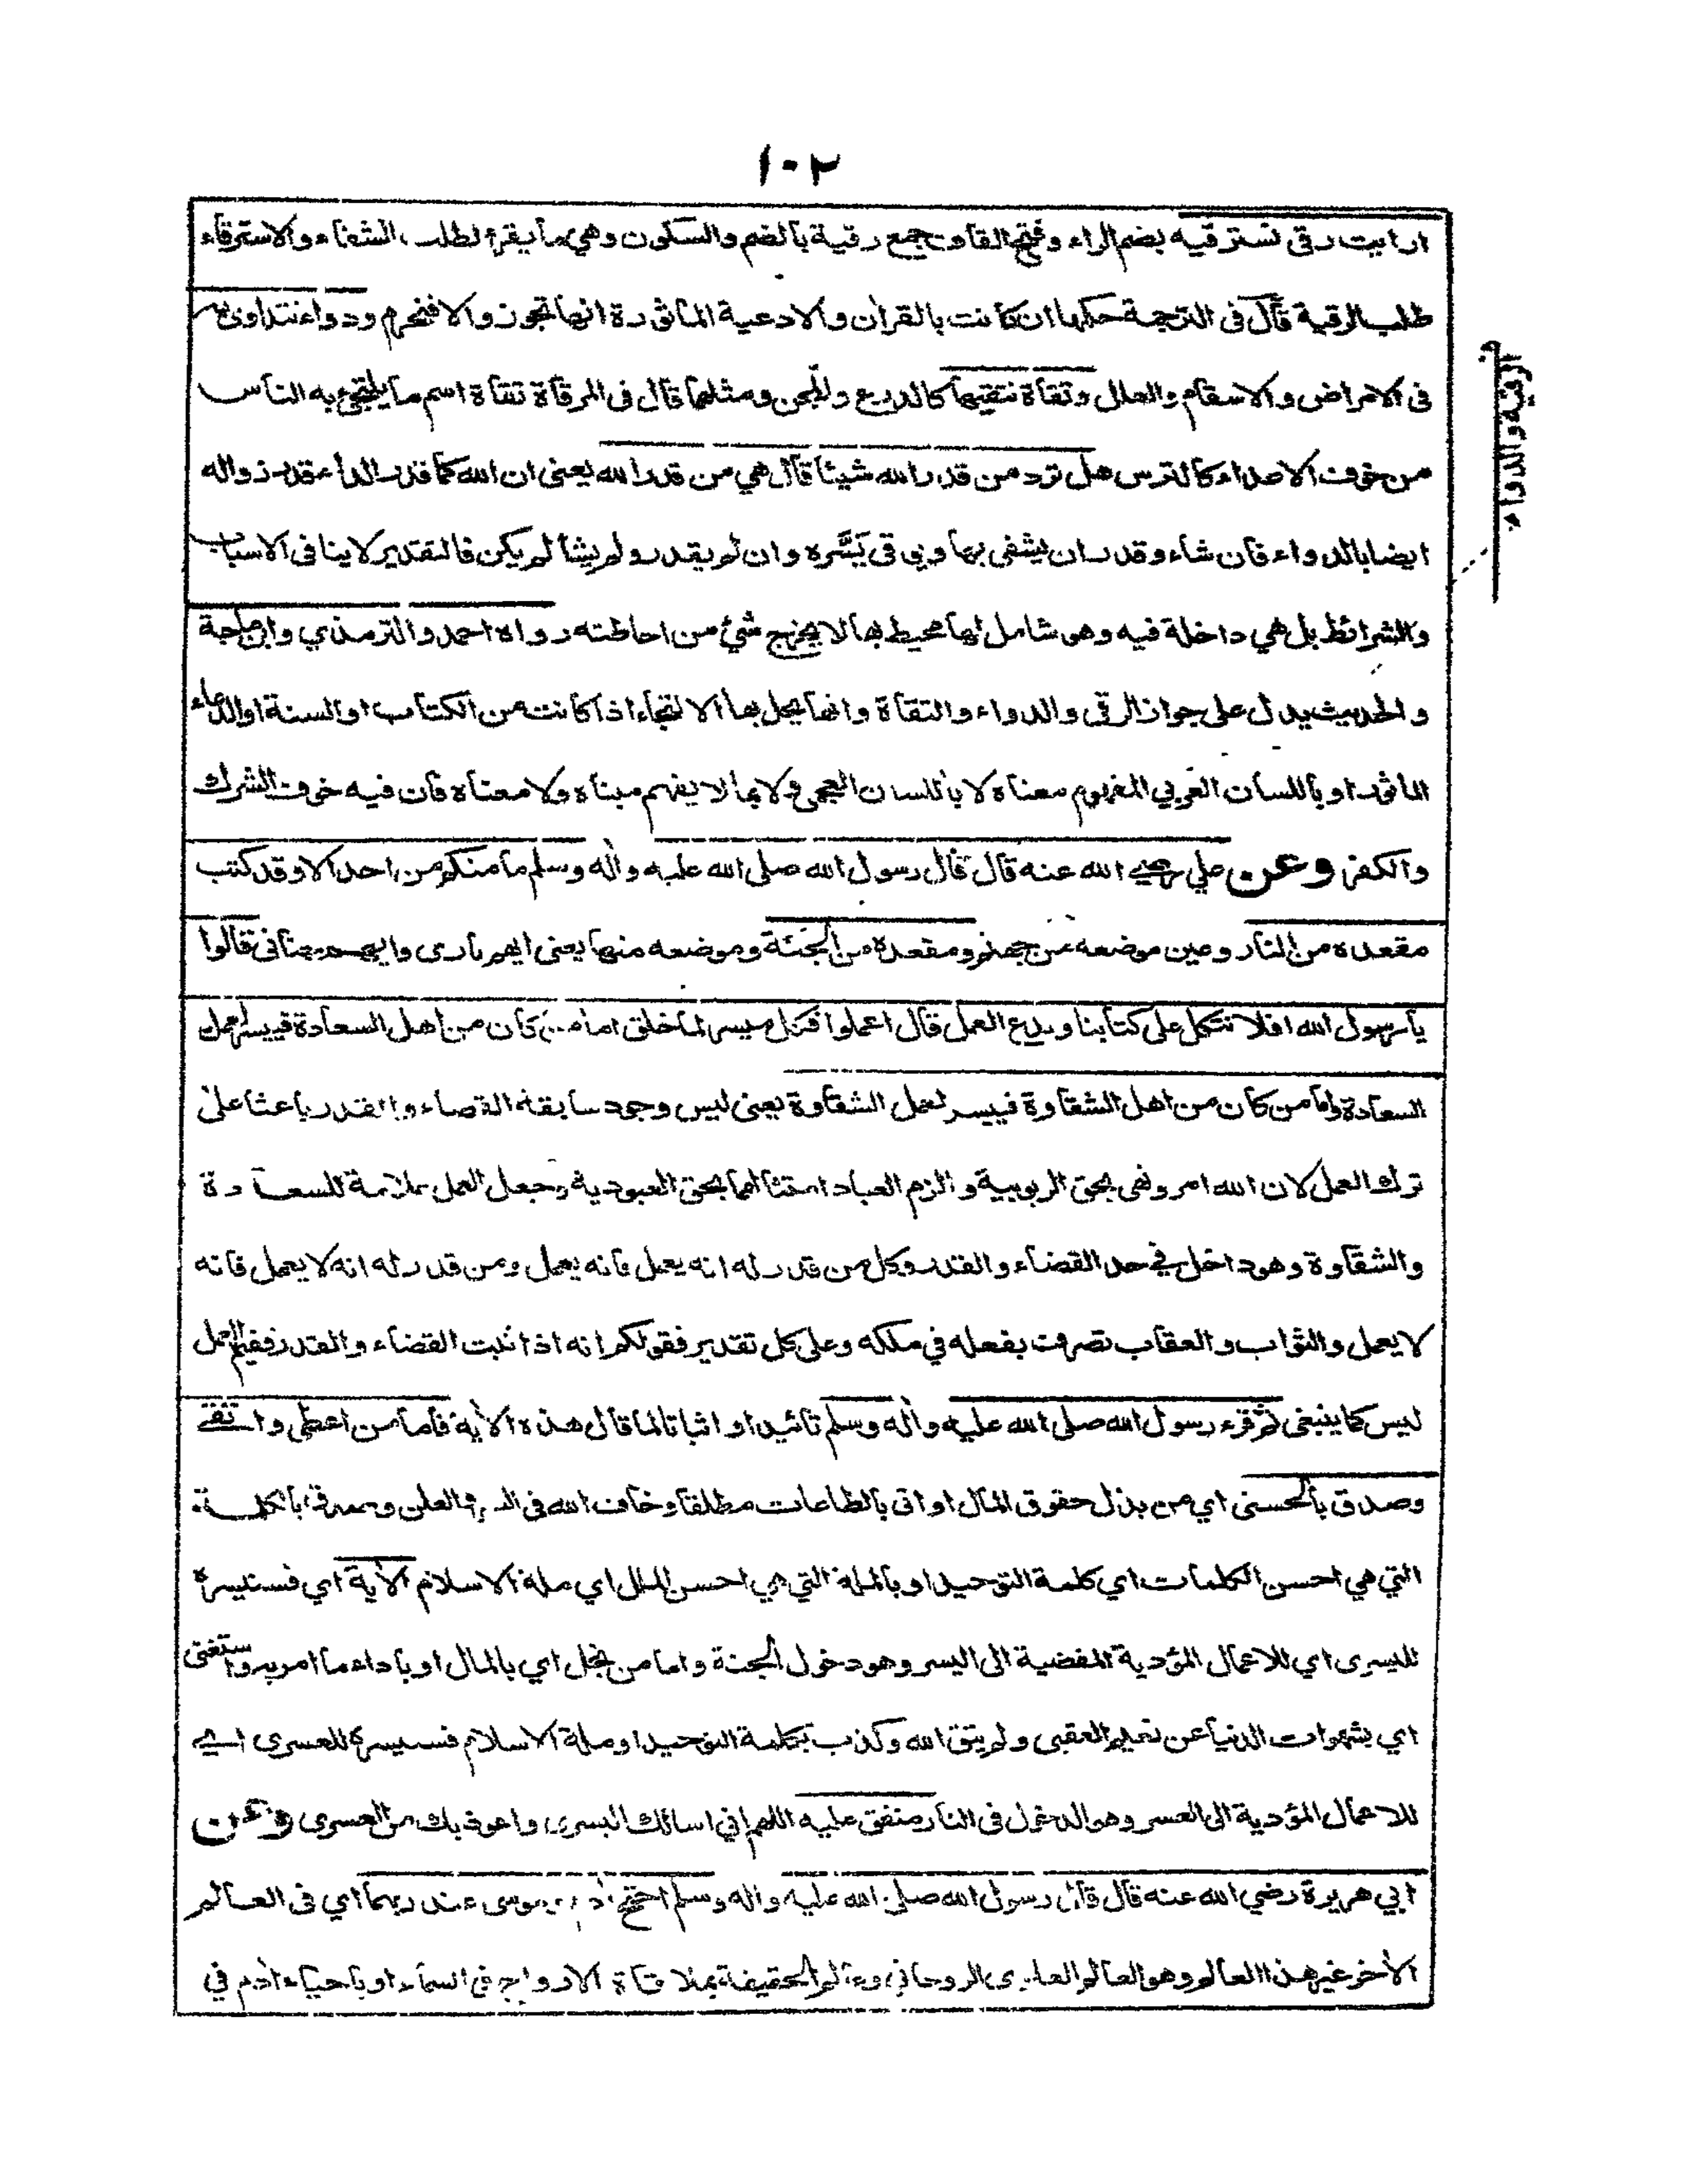 ١٠٢
ارايت رقى نسترقيه بضم الراء وفتح القاف جمع رقية بالضم والسكون وهي ما يقرء لطلب الشفاء والاسترقاء
طلب الرقية قال فى الترجمة حكمها ان كانت بالقران والادعية الماثورة انها تجوز والا فتحرم ودواء نتداوى به
فى الامراض والاسقام والعلل وتقاة نتقيها كالدرع والمجن ومثلهما قال فى المرقاة تقاة اسم ما يلتجئ به الناس
من خوف الاعداء كالترس هل ترد من قدر الله شيئا قال هي من قدر الله يعنى ان الله كما قدر الداء قدر زواله
ايضا بالدواء فان شاء وقدر ان يشفى بها ويوقى يسره وان لم يقدر ولم يشأ لم يكن فالتقدير لا ينافى الاسباب
والشرائط بل هي داخلة فيه وهو شامل لها محيط بها لا يخرج شئ من احاطته رواه احمد والترمذي وابن ماجة
والحديث يدل على جواز الرقى والدواء والتقاة وانها يحل بها الالتجاء اذا كانت من الكتاب او السنة او الدعاء
الماثور او باللسان العربي المفهوم معناه لا باللسان العجمى ولا بما لا يفهم مبناه ولا معناه فان فيه خوف الشرك
والكفر وعن علي رضي الله عنه قال قال رسول الله صلى الله عليه واله وسلم ما منكم من احد الا وقد كتب
مقعده من النار وعين موضعه من جهنم ومقعده من الجنة وموضعه منها يعنى ايهم نارى وايهم جنانى قالوا
يا رسول الله افلا نتكل على كتابنا وندع العمل قال اعملوا فكل ميسر لما خلق اما من كان من اهل السعادة فييسر لعمل
السعادة واما من كان من اهل الشقاوة فييسر لعمل الشقاوة يعنى ليس وجود سابقة القضاء والقدر باعثا على
ترك العمل لان الله امر ونهى بحق الربوبية والزم العباد امتثالهما بحق العبودية وجعل العمل علامة للسعادة
والشقاوة وهو داخل في حد القضاء والقدر وكل من قدر له انه يعمل فانه يعمل ومن قدر له انه لا يعمل فانه
لا يعمل والثواب والعقاب تصرف بفعله في ملكه وعلى كل تقدير فقولكم انه اذا ثبت القضاء والقدر ففيم العمل
ليس كما ينبغى ثم قرء رسول الله صلى الله عليه واله وسلم تائيدا او اثباتا لما قال هذه الاية فاما من اعطى واتقى
وصدق بالحسنى اي من بذل حقوق المال او اتى بالطاعات مطلقا وخاف الله فى السر والعلن وصدق بالكلمة
التي هي احسن الكلمات اي كلمة التوحيد او بالملة التي هي احسن الملل اي ملة الاسلام الاية اي فسنيسره
لليسرى اي للاعمال المؤدية المفضية الى اليسر وهو دخول الجنة واما من بخل اي بالمال او باداء ما امر به واستغنى
اي بشهوات الدنيا عن نعيم العقبى ولم يتق الله وكذب بكلمة التوحيد او ملة الاسلام فسنيسره للعسرى اي
للاعمال المؤدية الى العسر وهو الدخول فى النار متفق عليه اللهم اني اسالك اليسرى واعوذ بك من العسرى وعن
ابي هريرة رضي الله عنه قال قال رسول الله صلى الله عليه واله وسلم احتج ادم وموسى عند ربهما اي فى العالم
الاخر غير هذا العالم وهو العالم العلوى الروحاني الحقيقة بملاقاة الارواح فى السماء او باحياء ادم في
الرقية والدواء